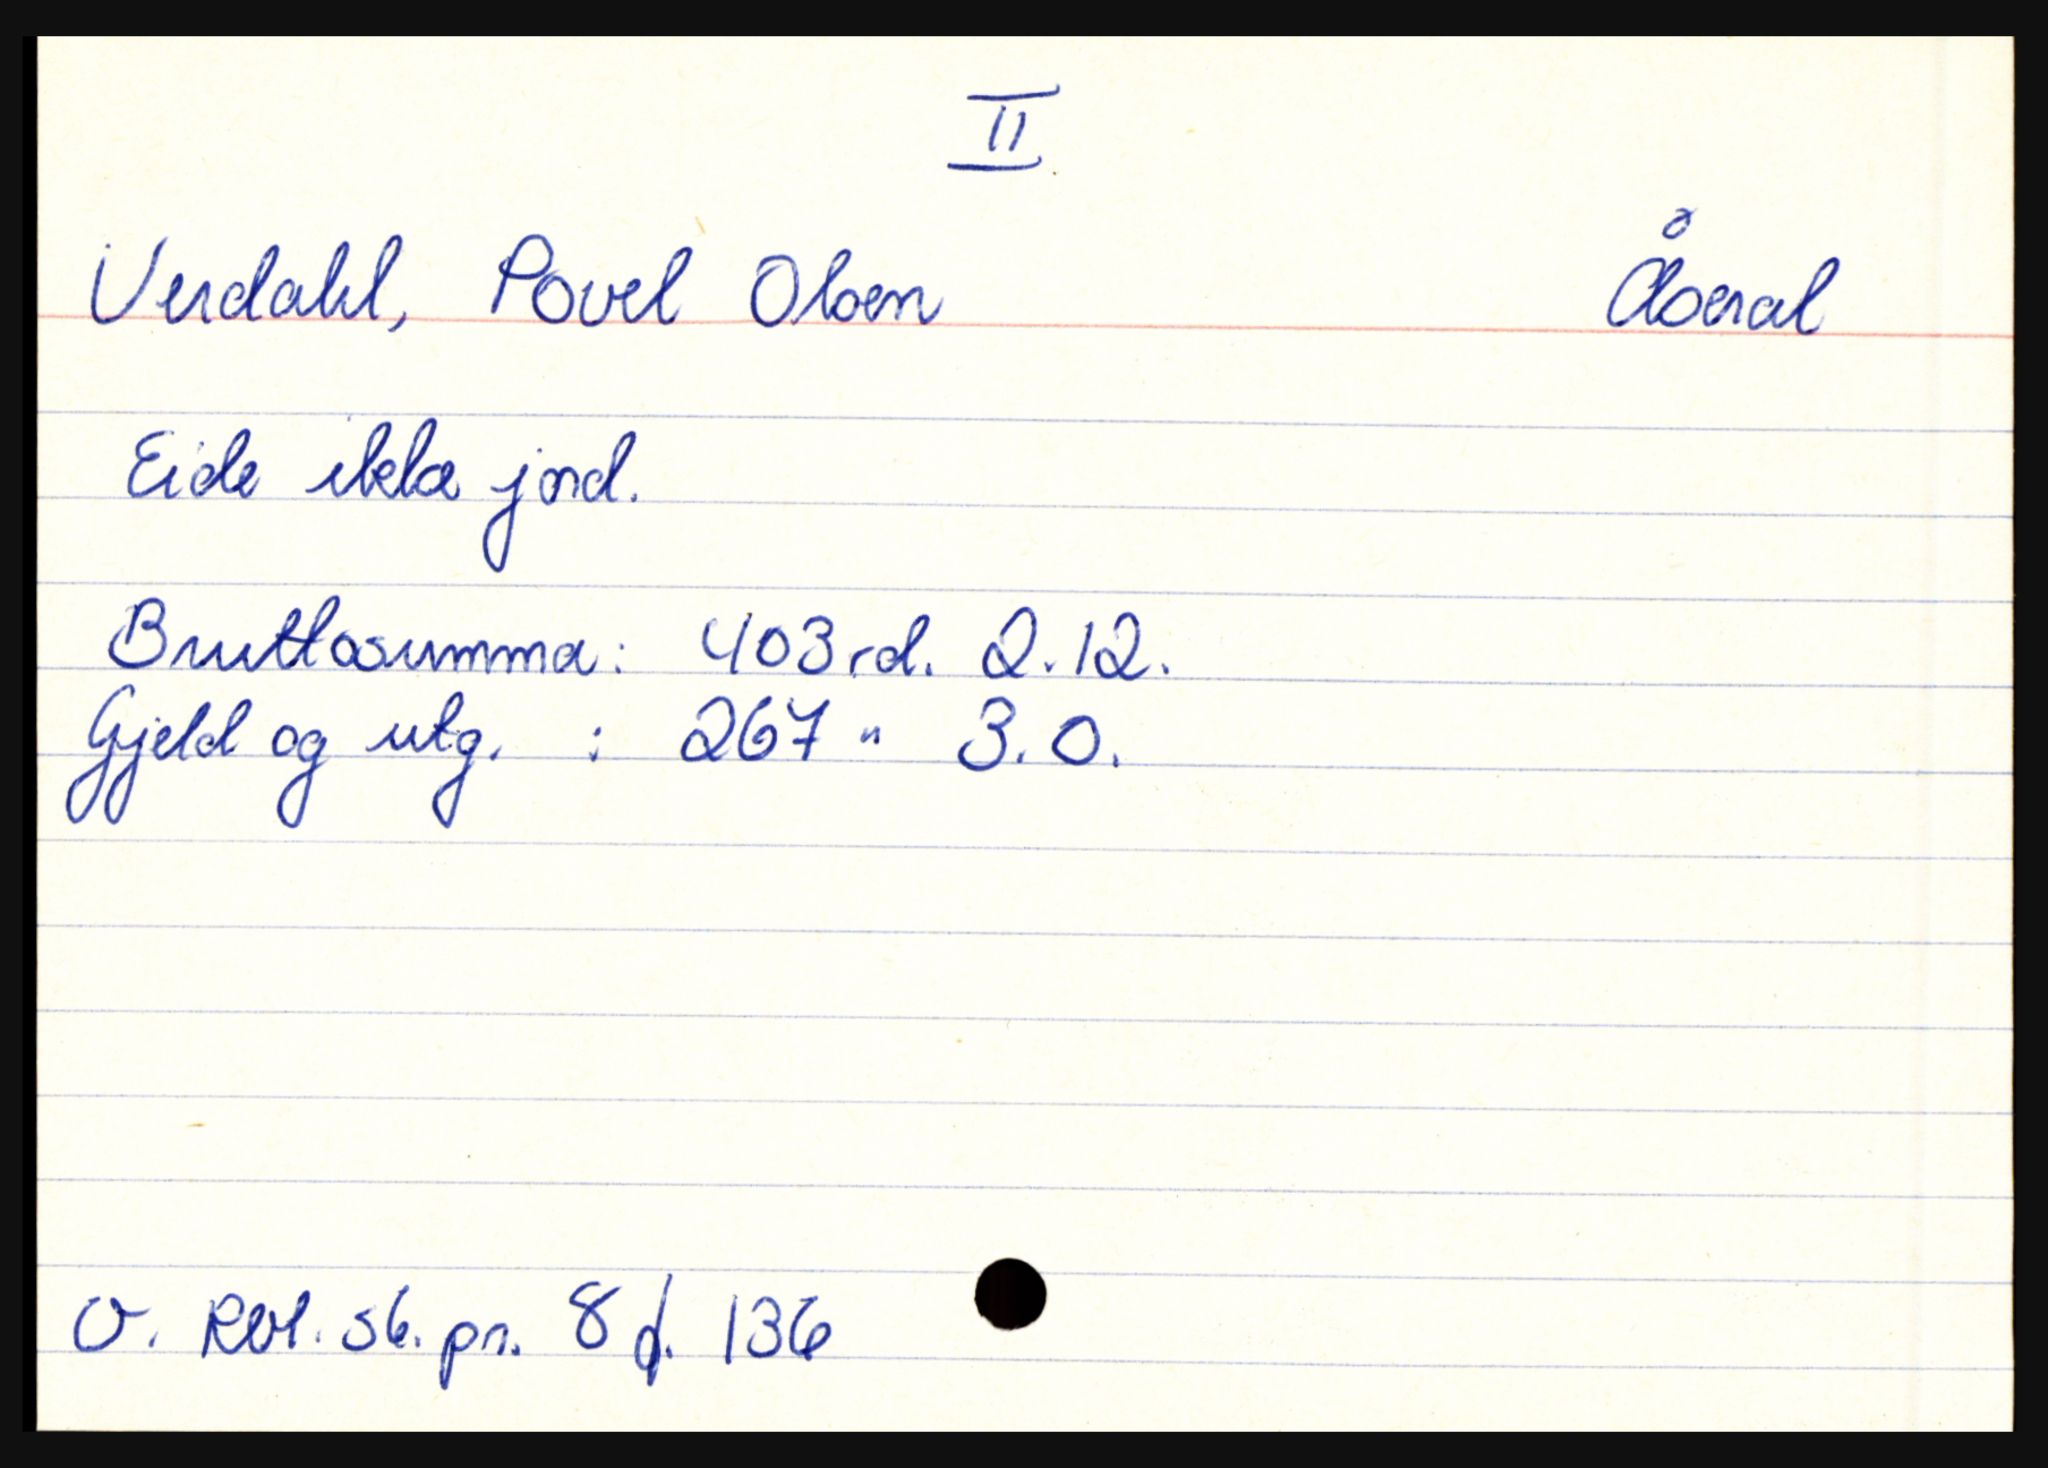 II
Verdahl, Povel Olsen Åseral
Eide ikke jord.
Bruttosumma: 403 rd. 2.12.
Gjeld og utg. : 267 " 3.0.
V. Rbl. sk. pr. 8 f. 136